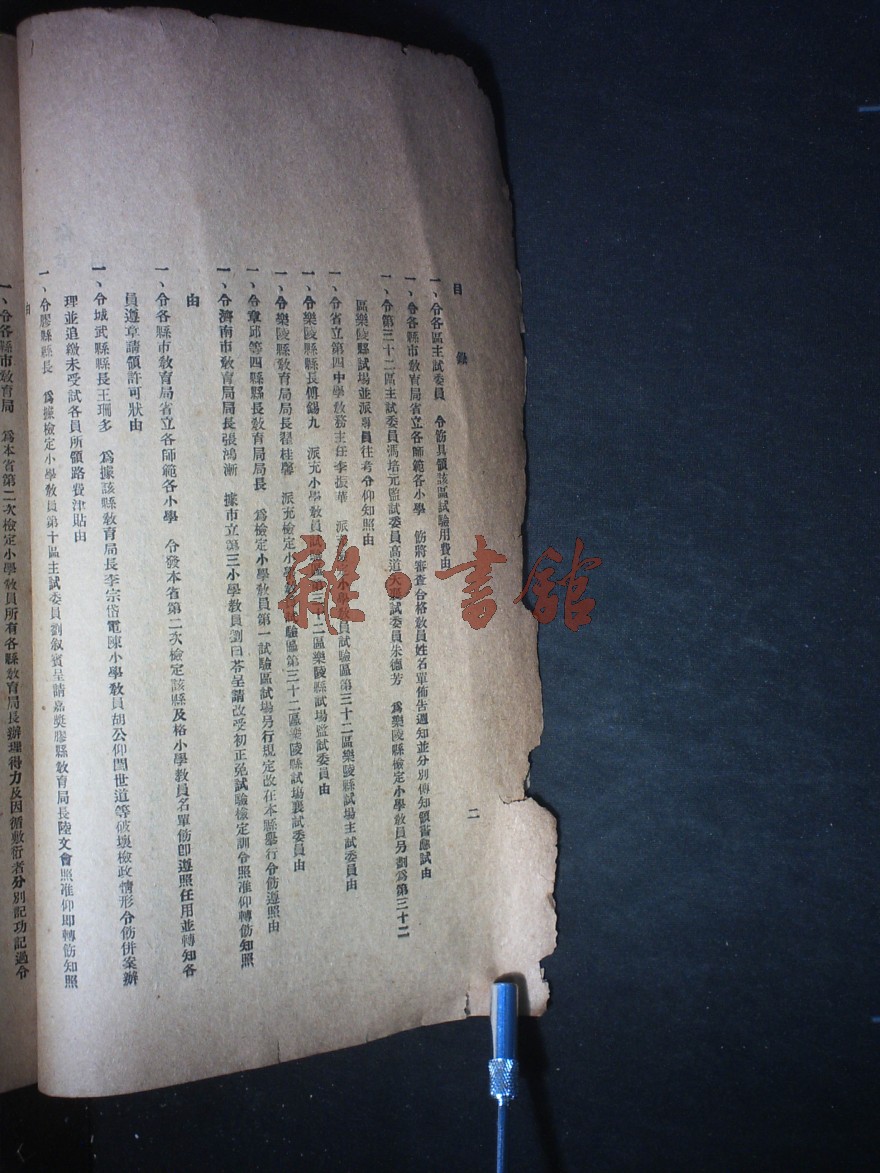 目錄
二
一、令各區主試委員　令飭具領該區試驗用費由
一、令各縣市教育局省立各師範各小學　飭將審查合格教員姓名單佈告週知並分別傳知領書應試由
一、令第三十二區主試委員馮培元監試委員高道天襄試委員朱德芳　爲樂陵縣檢定小學教員另劃爲第三十二
區樂陵縣試場並派專員往考令仰知照由
一、令省立第四中學教務主任李振華　派 小學教員試驗區第三十二區樂陵縣試場主試委員由
一、令樂陵縣縣長傅錫九　派充小學教員試驗區第三十二區樂陵縣試場監試委員由
一、令樂陵縣教育局局長翟桂馨　派充檢定小學教員試驗區第三十二區樂陵縣試場襄試委員由
一、令章邱等四縣縣長教育局局長　爲檢定小學教員第一試驗區試場另行規定改在本縣舉行令飭遵照由
一、令濟南市教育局局長張鴻漸　據市立第三小學教員劉曰苓呈請改受初正免試驗檢定訓令照准仰轉飭知照
由
一、令各縣市教育局省立各師範各小學　令發本省第二次檢定該縣及格小學教員名單飭卽遵照任用並轉知各
員遵章請領許可狀由
一、令城武縣縣長王珊多　爲據該縣教育局長李宗岱電陳小學教員胡公仰閻世道等破壞檢政情形令飭併案辦
理並追繳未受試各員所領路費津貼由
一、令膠縣縣長　爲據檢定小學教員第十區主試委員劉叙賓呈請嘉獎膠縣教育局長陸文會照准仰卽轉飭知照
由
一、令各縣市教育局　爲本省第二次檢定小學教員所有各縣教育局長辦理得力及因循敷衍者分別記功記過令
雜·書館